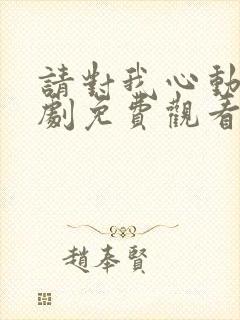 請對我心動
劇免費觀看
趙奉賢